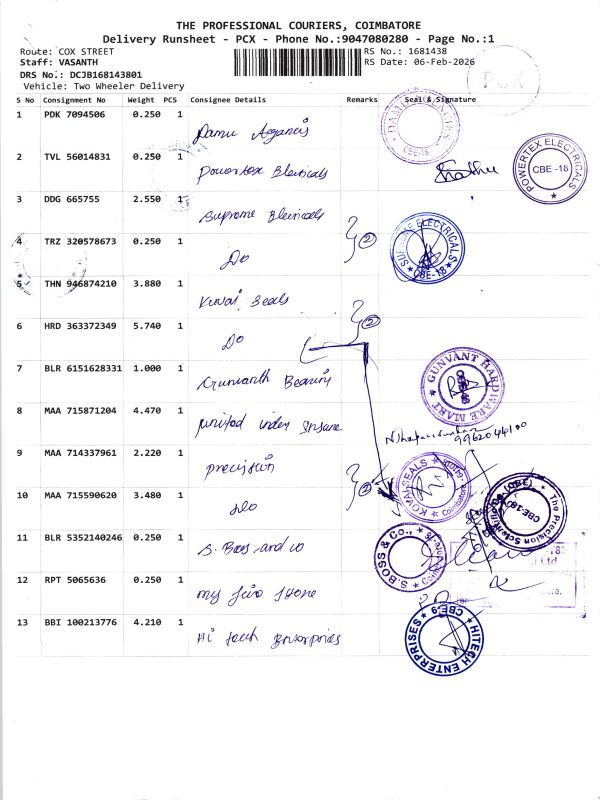 THE PROFESSIONAL COURIERS, COIMBATORE
Delivery Runsheet - PCX - Phone No.:9047080280 - Page No.:1
Route: COX STREET
RS No.: 1681438
Staff: VASANTH
RS Date: 06-Feb-2026
DRS No.: DCJB168143801
Vehicle: Two Wheeler Delivery
PCX
S No Consignment No Weight PCS Consignee Details Remarks Seal & Signature
1 PDK 7094506 0.250 1 Damu Agancis
CBE-18
2 TVL 56014831 0.250 1 Powertex Eleticals
POWERTEX ELECTRICALS CBE -18
3 DDG 665755 2.550 1 Supreme Eleticals
4 TRZ 320578673 0.250 1 Do
2
SUPREME ELECTRICALS CBE-18
5 THN 946874210 3.880 1 Kuvai Seals
6 HRD 363372349 5.740 1 Do
2
7 BLR 6151628331 1.000 1 Gunvanth Bearing
GUNVANT HARDWARE MART
8 MAA 715871204 4.470 1 united Indey Insure
9962044100
9 MAA 714337961 2.220 1 precision
KOVAI SEALS Coimbatore
10 MAA 715590620 3.480 1 Do
2
The Precision Scientific (CBE) CBE-18
11 BLR 5352140246 0.250 1 S. Boss and co
S.BOSS & Co.,
12 RPT 5065636 0.250 1 my Jio Store
13 BBI 100213776 4.210 1 Hi Tech Enterprices
HITECH ENTERPRISES CBE-9